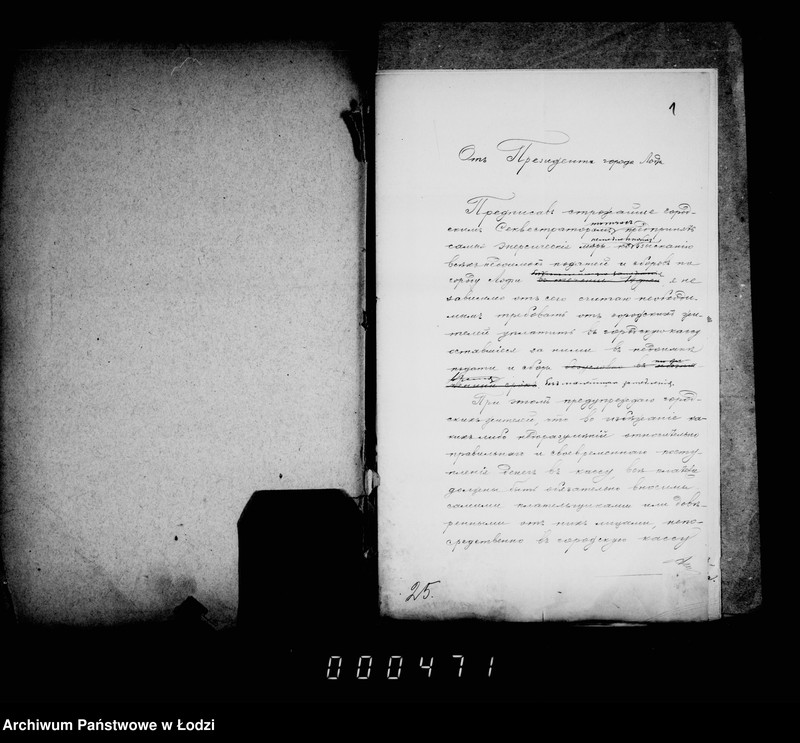 1
Отъ Президента города Лодзи
Предписавъ строжайше город-
скимъ Секвестраторамъ предпринять
самыя энергическiя мѣры
всякой недоимкой податей и сборовъ по
городу Лодзи я не
зависимо отъ сего считаю необходи-
мымъ требовать отъ городскихъ жи-
телей уплатить въ городскую кассу
оставшiеся за ними въ недоимкѣ
подати и сборы
При этомъ предупреждаю город-
скихъ жителей, что во избѣжанiе ка-
кихъ либо недоразумѣнiй относительно
правильнаго и своевременнаго посту-
пленiя денегъ въ кассу всѣ
должны быть обязательно вносимы
самими плательщиками или довѣ-
ренными отъ нихъ лицами, непо-
средственно въ городскую кассу
25.
000471
Archiwum Państwowe w Łodzi